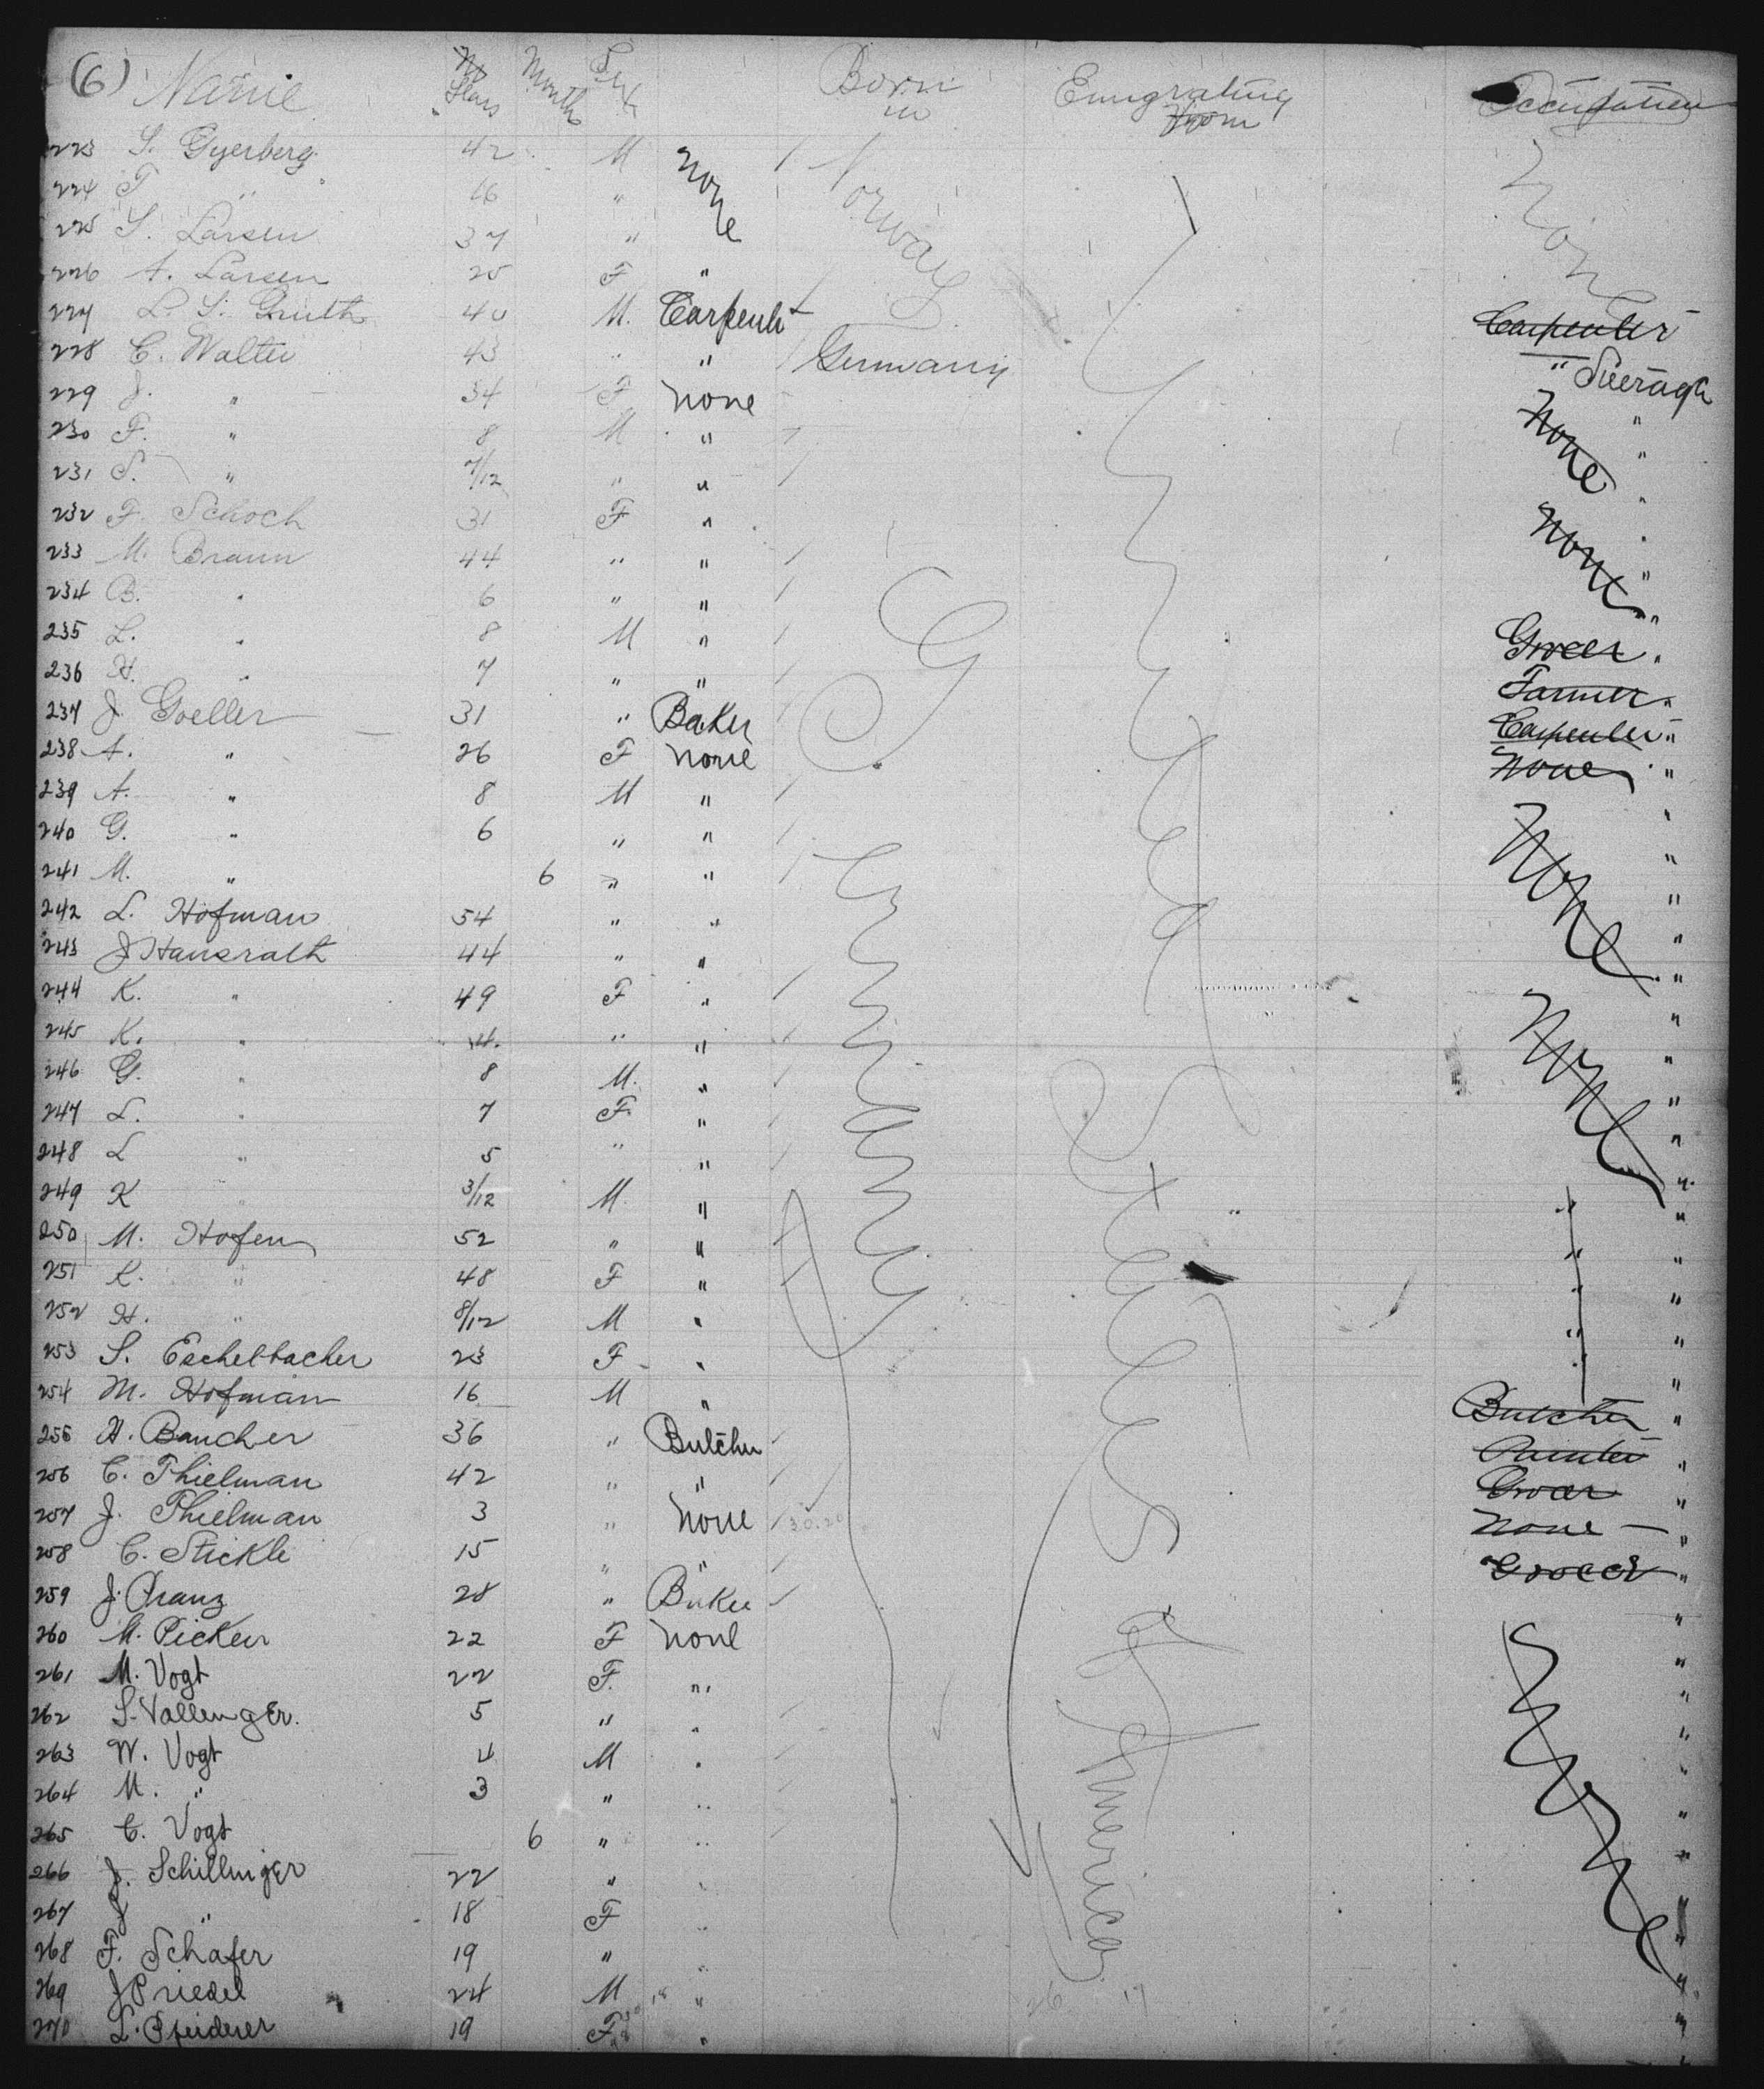 (6) Name No Years Month Sex Born in Emigrating from Occupation
223 S. Gyerberg 42 M None Norway None
224 F " 16 "
225 S. Larsen 37 "
226 A. Larsen 25 F "
227 L. S. Gruth 40 M. Carpenter Carpenter
228 C. Walter 43 " " Germany " Steerage
229 J. " 34 F None "
230 F. " 8 M " None "
231 S. " 7/12 " " "
232 F. Schoch 31 F " None
233 M. Braun 44 " " "
234 B. " 6 " " "
235 L. " 8 M " Grocer "
236 H. " 7 " " Farmer "
237 J. Goeller 31 " Baker Carpenter "
238 A. " 26 F None None "
239 A. " 8 M " "
240 G. " 6 " " None "
241 M. " 6 " " "
242 L. Hofman 54 " " "
243 J Hausrath 44 " " "
244 K. " 49 F " "
245 K. " 4. " " None "
246 G. " 8 M. " "
247 L. " 7 F. " "
248 L " 5 " " "
249 K " 3/12 M. " " " "
250 M. Hofen 52 " " " "
251 K. " 48 F " " "
252 H. " 8/12 M " " "
253 S. Eschelbacher 23 F " " "
254 M. Hofman 16 M " Butcher "
255 H. Baucher 36 " Butcher Painter "
256 C. Thielman 42 " " Grocer "
257 J. Thielman 3 " None None
258 C. Stickle 15 " " Grocer "
259 J. Pranz 28 " Baker "
260 M. Picken 22 F None None "
261 M. Vogt 22 F. " "
262 S. Vallenger. 5 " " "
263 W. Vogt 4 M " "
264 M. " 3 " " "
265 C. Vogt 6 " " "
266 J. Schillinger 22 " "
267 J " 18 F " "
268 F. Schafer 19 " " "
269 J Priedel 24 M " "
270 L. Pfeiderer 19 F. " "
Germany
United States of America